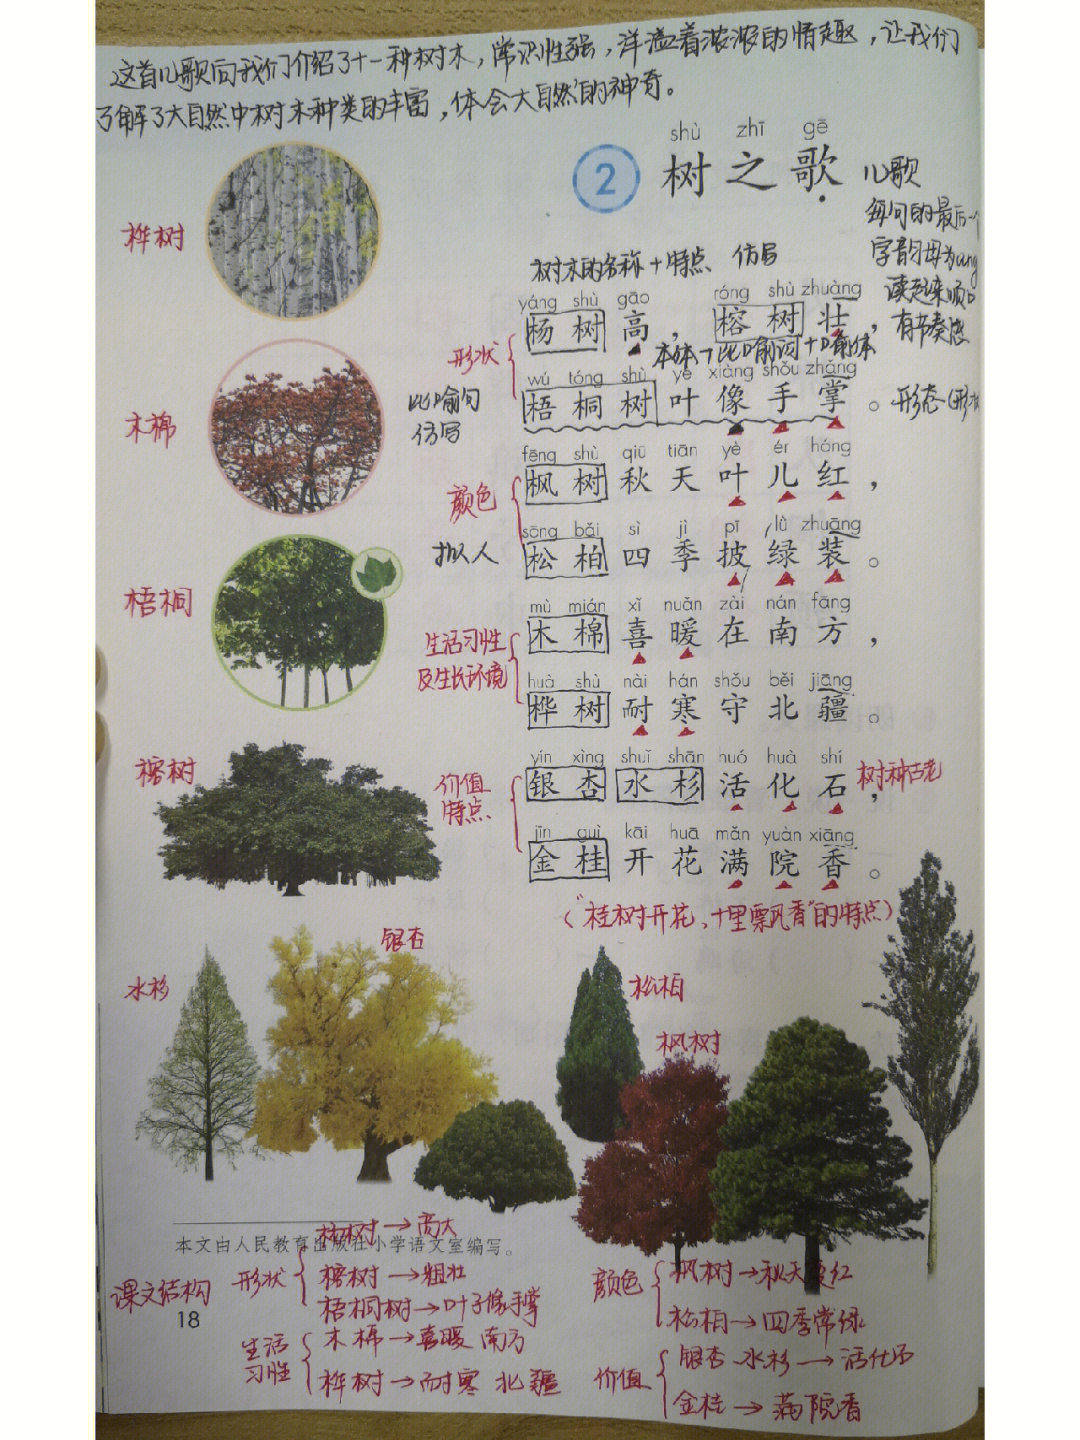 这首儿歌向我们介绍了十一种树木，常识性强，洋溢着浓浓的情趣，让我们
了解了大自然中树木种类的丰富，体会大自然的神奇。
shù zhī gē
2 树之歌
儿歌
每句的最后一个
字韵母为ang
读起来顺口
有节奏感
桦树
树木的名称+特点 仿写
yáng shù gāo róng shù zhuàng
杨树高，榕树壮，
形状
本体+比喻词+喻体
wú tóng shù yè xiàng shǒu zhǎng
梧桐树叶像手掌。
形态（形状
木棉
比喻句
仿写
fēng shù qiū tiān yè ér hóng
枫树秋天叶儿红，
颜色
sōng bǎi sì jì pī lǜ zhuāng
松柏四季披绿装。
拟人
梧桐
mù mián xǐ nuǎn zài nán fāng
木棉喜暖在南方，
生活习性
及生长环境
huà shù nài hán shǒu běi jiāng
桦树耐寒守北疆。
榕树
yín xìng shuǐ shān huó huà shí
银杏水杉活化石，
树种古老
价值
特点
jīn guì kāi huā mǎn yuàn xiāng
金桂开花满院香。
（“桂树开花，十里飘香”的特点）
水杉
银杏
松柏
枫树
本文由人民教育出版社小学语文室编写。
18
课文结构
形状
树→高大
榕树→粗壮
梧桐树→叶子像手掌
生活
习性
木棉→喜暖 南方
桦树→耐寒 北疆
颜色
枫树→秋天变红
松柏→四季常绿
价值
银杏 水杉→活化石
金桂→满院香